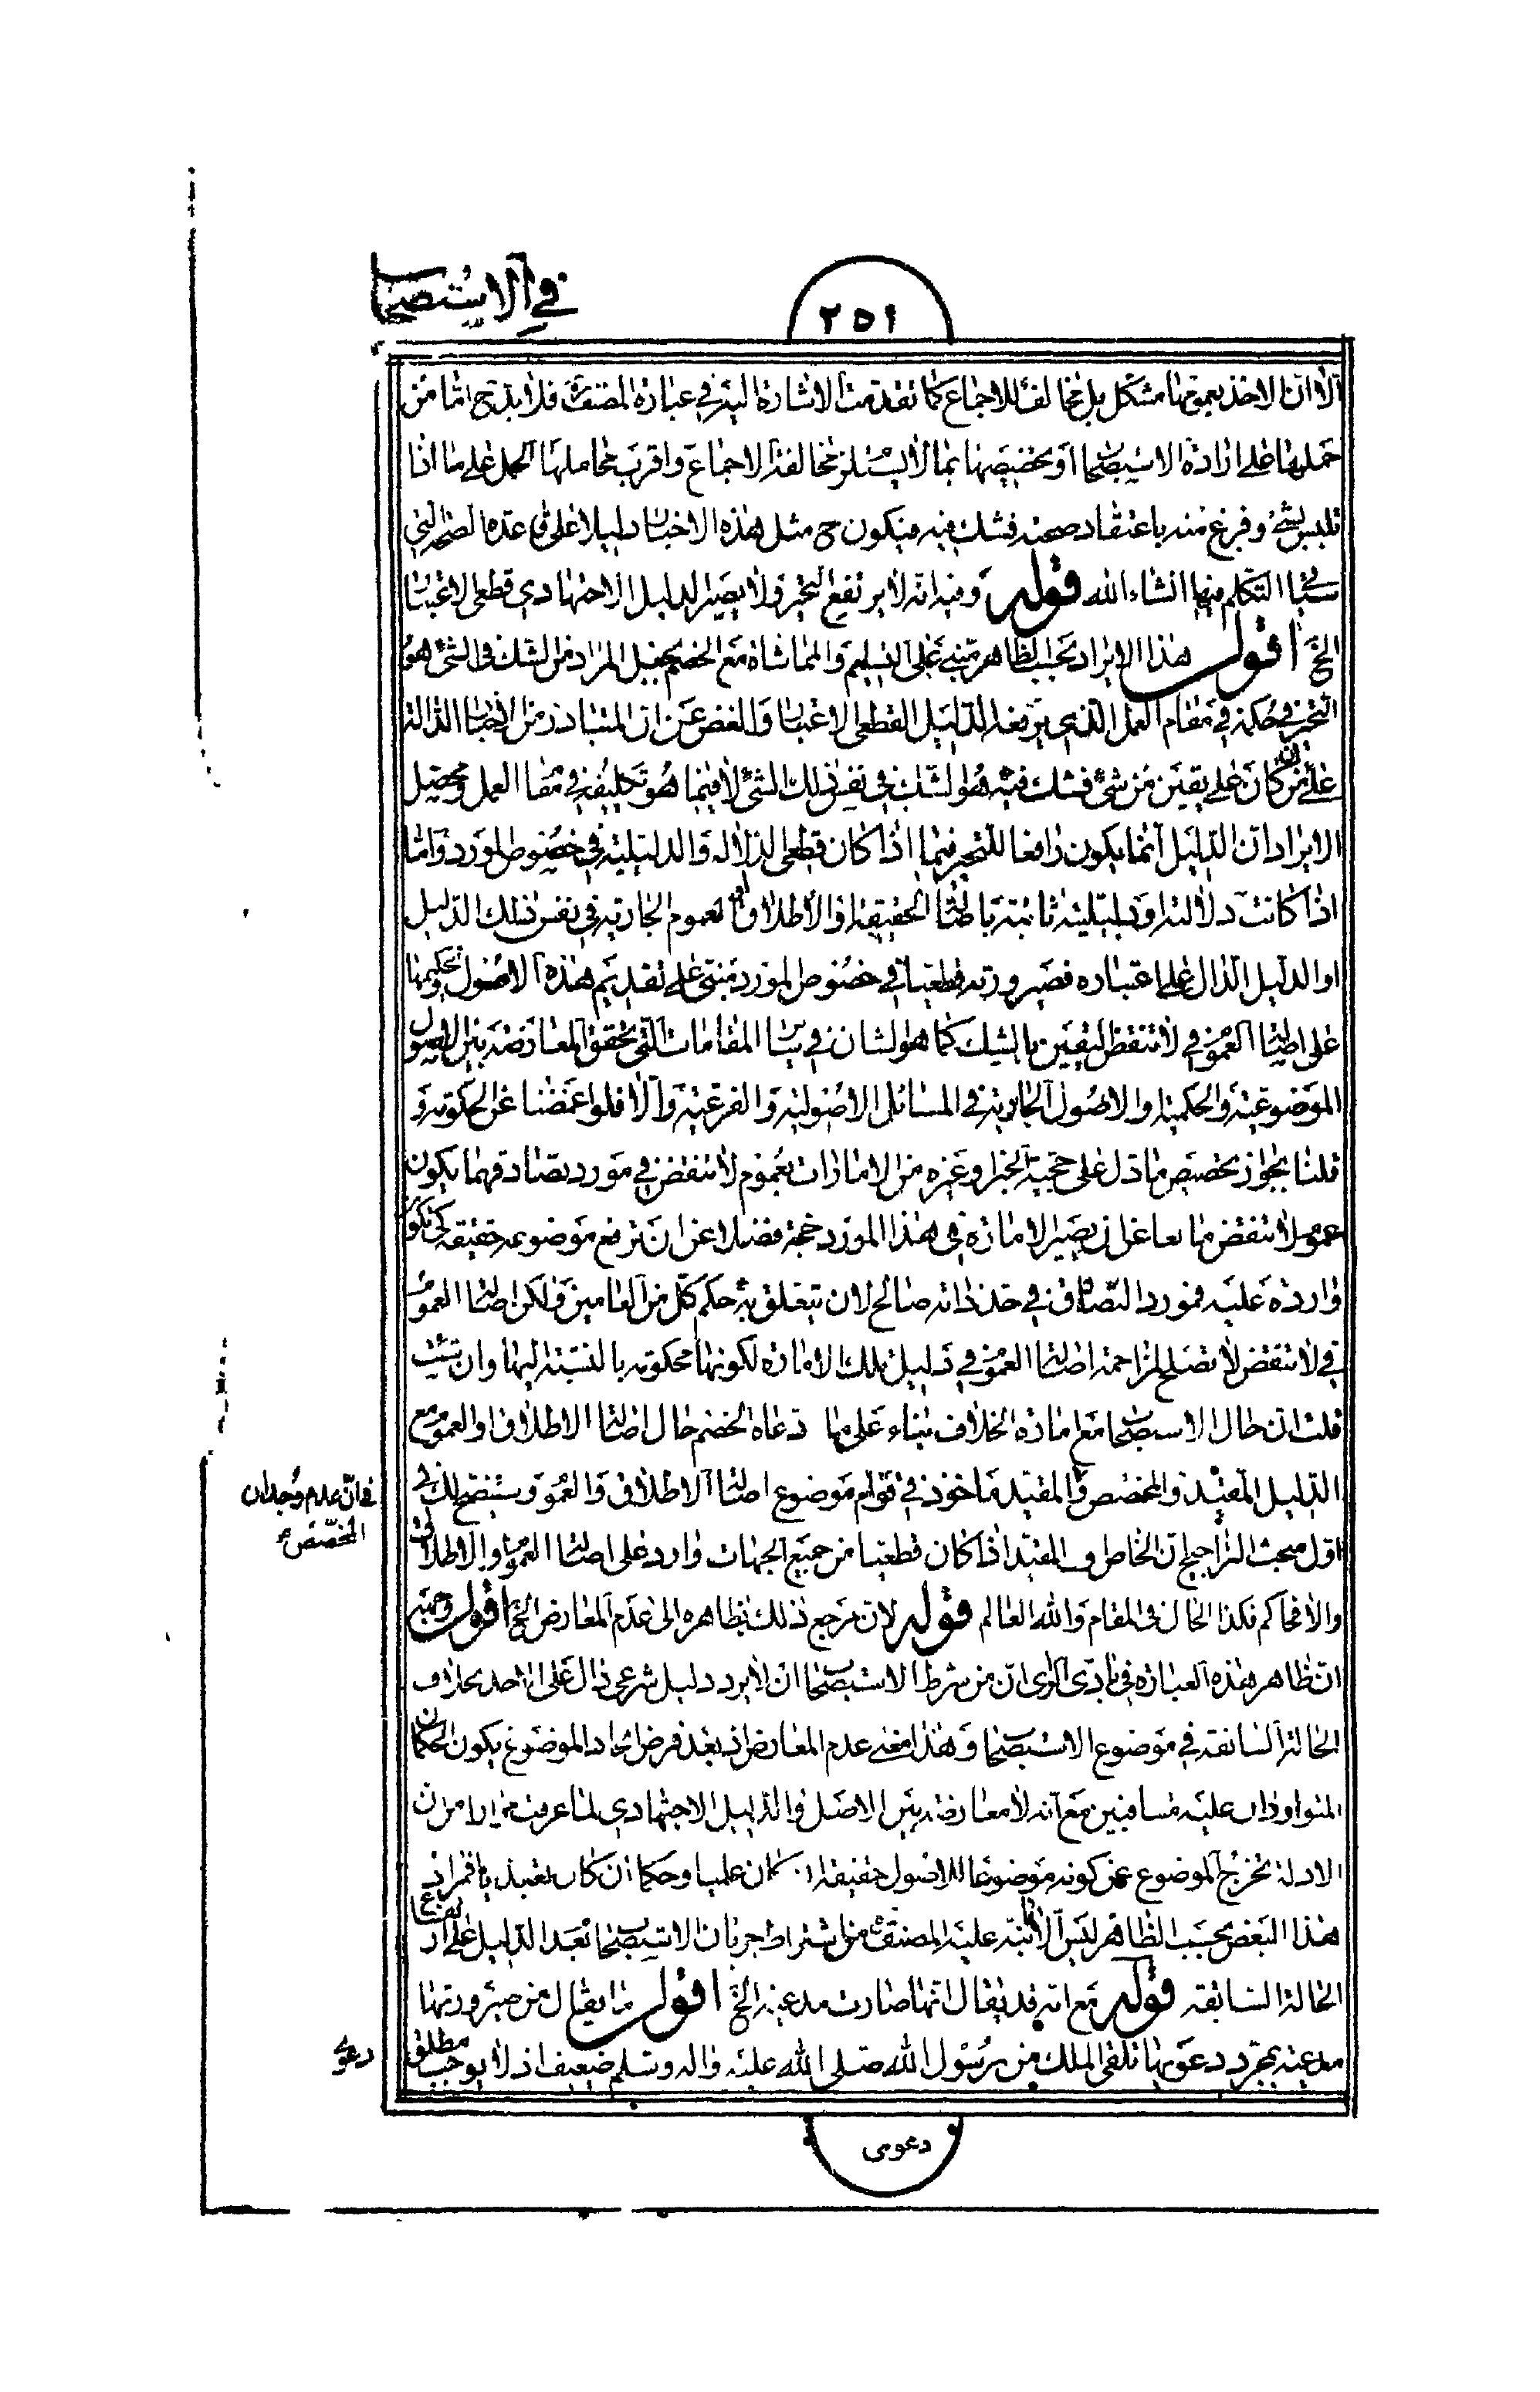 في الاستصحاب
٢٥١
الا ان الاخذ بعمومها مشكل بل مخالف للاجماع كما تقدمت الاشارة اليه في عبارة المصنف ره فلا بد ح اما من
حملها على ارادة الاستصحاب او تخصيصها بما لا يستلزم مخالفة الاجماع واقرب محاملها الحمل على ما اذا
تلبس بشئ وفرغ منه باعتقاد صحته فشك فيه فيكون ح مثل هذه الاخبار دليلا على قاعدة الصحة التي
سيأتي التكلم فيها انشاء الله قوله وفيه انه لا يرتفع التحير ولا يصير الدليل الاجتهادي قطعي الاعتبار
الخ اقول هذا الايراد بحسب الظاهر مبني على التسليم والمماشاة مع الخصم بجعل المراد من الشك في الشئ هو
التحير في حكمه في مقام العمل الذي يرفعه الدليل القطعي الاعتبار والغض عن ان المتبادر من الاخبار الدالة
على ان من كان على يقين من شئ فشك فيه هو الشك في نفس ذلك الشئ لا فيما هو تكليفه في مقام العمل ومحصل
الايراد ان الدليل انما يكون رافعا للتحير فيما اذا كان قطعي الدلالة والدليلية في خصوص المورد واما
اذا كانت دلالته او دليليته ثابتة باصالة الحقيقة او الاطلاق او العموم الجارية في نفس ذلك الدليل
او الدليل الدال على اعتباره فصيرورته قطعيا في خصوص المورد مبتني على تقديم هذه الاصول وتحكيمها
على اصالة العموم في لا تنقض اليقين بالشك كما هو الشان في سائر المقامات التي تحقق المعارضة بين الاصول
الموضوعية والحكمية والاصول الجارية في المسائل الاصولية والفرعية والا فلو اغمضنا عن الحكومة و
قلنا بجواز تخصيص ما دل على حجية الخبر وغيره من الامارات بعموم لا تنقض في مورد تصادقهما يكون
عموم لا تنقض مانعا عن ان يصير الامارة في هذا المورد حجة فضلا عن ان ترفع موضوعه حقيقة كي تكون
واردة عليه فمورد التصادق في حد ذاته صالح لان يتعلق به حكم كل من العامين ولكن اصالة العموم
في لا تنقض لا تصلح لمزاحمة اصالة العموم في دليل تلك الامارة لكونها محكومة بالنسبة اليها وان شئت
قلت ان حال الاستصحاب مع مادة الخلاف بناء على ما ادعاه الخصم حال اصالة الاطلاق والعموم مع
الدليل المقيد والمخصص والمقيد ماخوذ في قوام موضوع اصالة الاطلاق والعموم وستتضح لك في
فان عدم وجدان
المخصص
اول مبحث التراجيح ان الخاص والمقيد اذا كان قطعيا من جميع الجهات وارد على اصالة العموم والاطلاق
والا فحاكم فكذا الحال في المقام والله العالم قوله لان مرجع ذلك بظاهره الى عدم المعارض الخ اقول وجهه
ان ظاهر هذه العبارة في بادي الراي ان من شرط الاستصحاب ان لا يرد دليل شرعي دال على اخذ بخلاف
الحالة السابقة في موضوع الاستصحاب وهذا معنى عدم المعارض اذ بعد فرض اتحاد الموضوع يكون الحكمان
المتواردان عليه متنافيين مع انه لا معارضة بين الاصل والدليل الاجتهادي لما عرفت مرارا من ان
الادلة تخرج الموضوع عن كونه موضوعا للاصول حقيقة ان كان علميا وحكما ان كان بعيد
هذا البعض بحسب الظاهر ليس الا ما نبه عليه المصنف ره من اشتراط جريان الاستصحاب بعدم الدليل على ارتفاع
الحالة السابقة قوله مع انه قد يقال انها صارت مدعية الخ اقول ما يقال من صيرورتها
مدعية بمجرد دعويها تلقى الملك من رسول الله صلى الله عليه واله وسلم ضعيف اذ لا يوجب مطلق
دعوى
دعوى